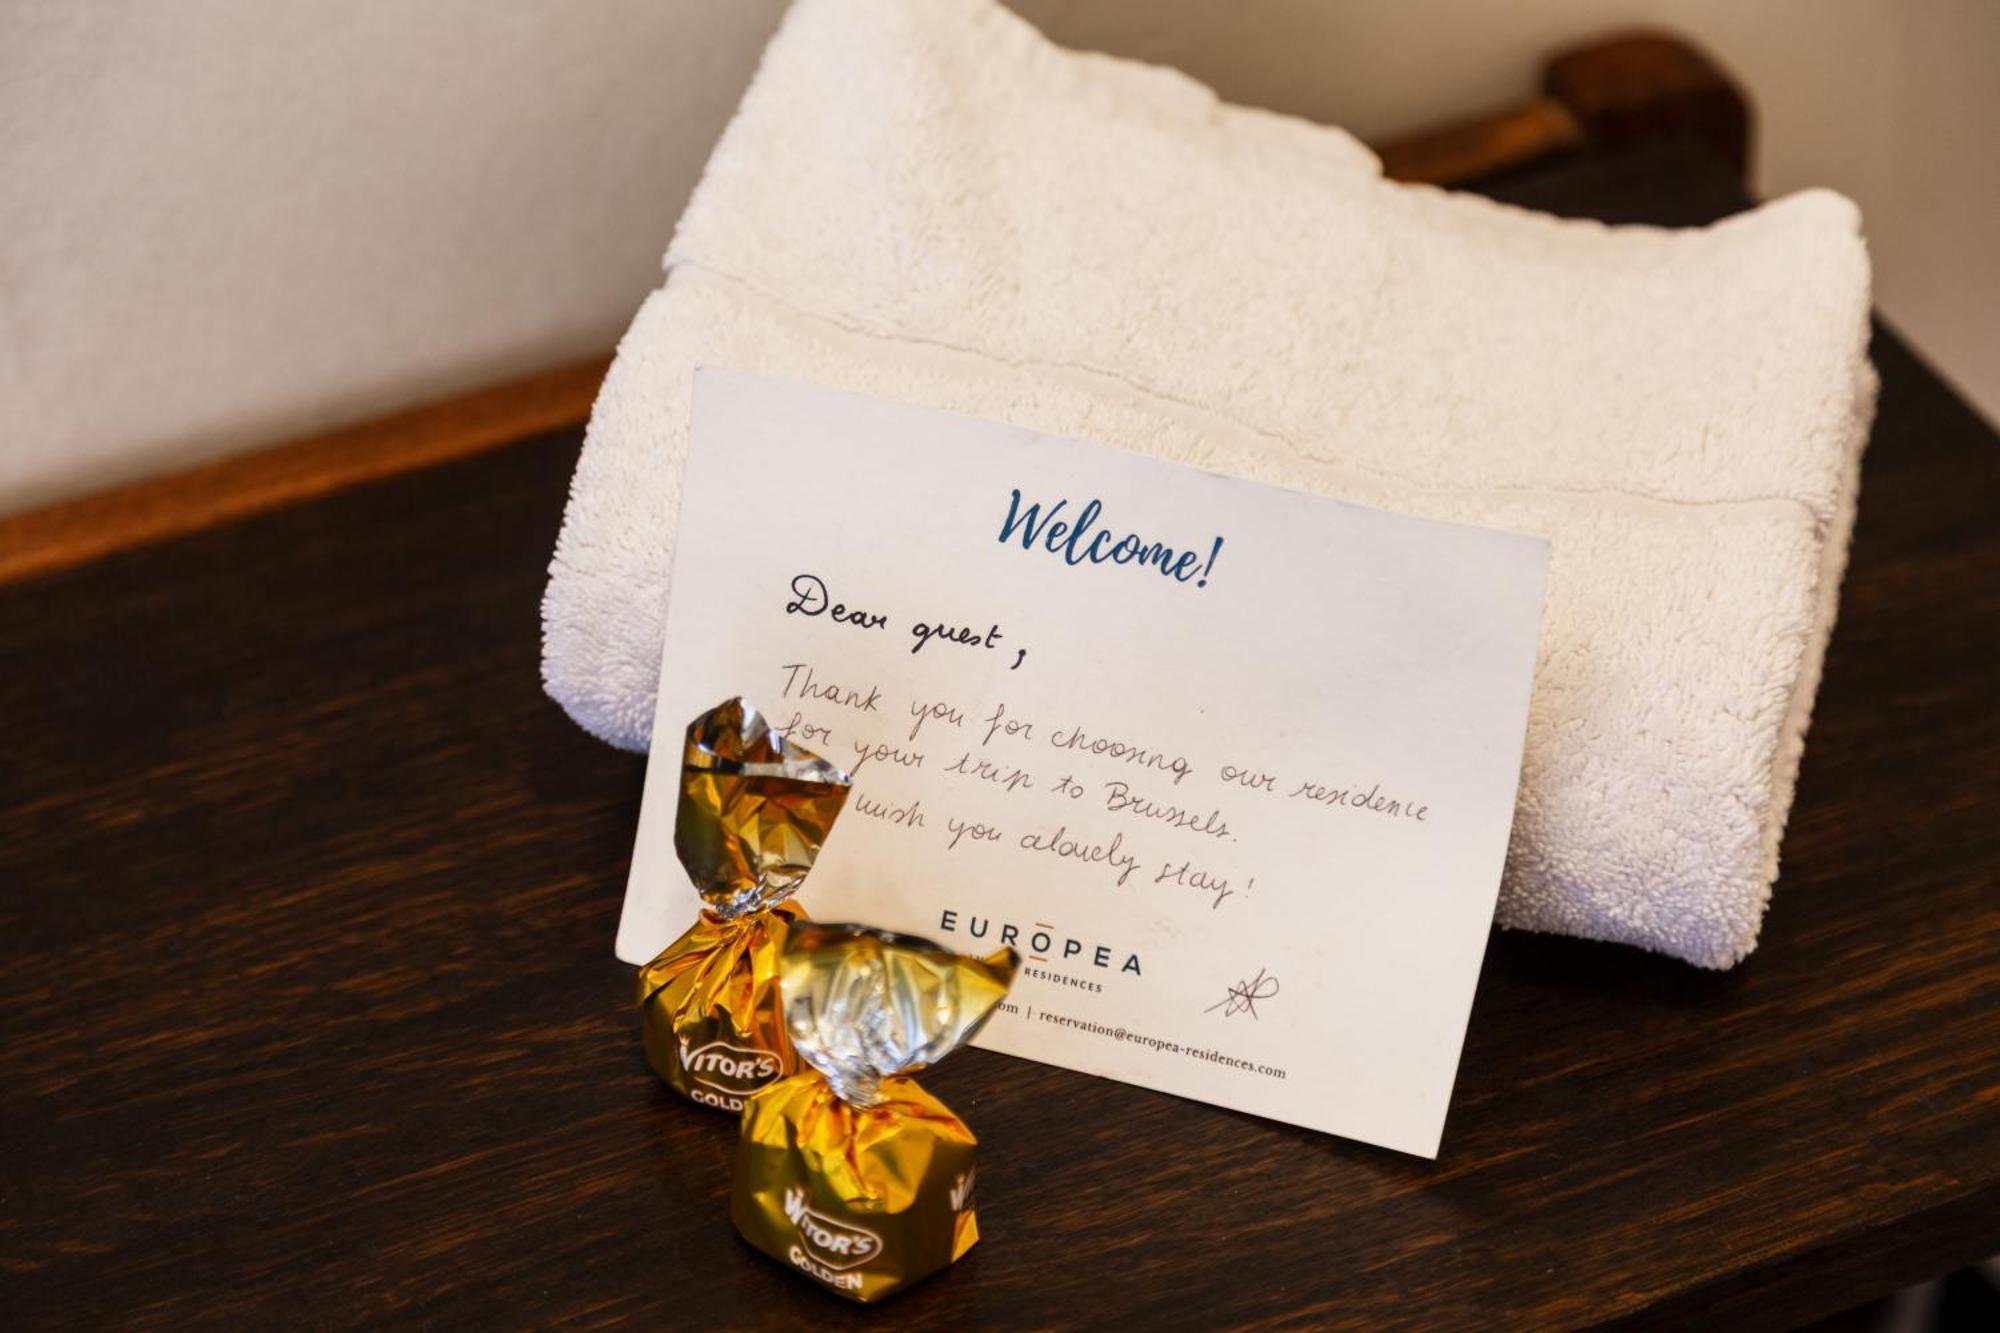 Welcome!
Dear guest,
Thank you for choosing our residence
for your trip to Brussels.
wish you a lovely stay!
EUROPEA
RESIDENCES
om | reservation@europea-residences.com
WITOR'S
GOLDEN
WITOR'S
GOLDEN